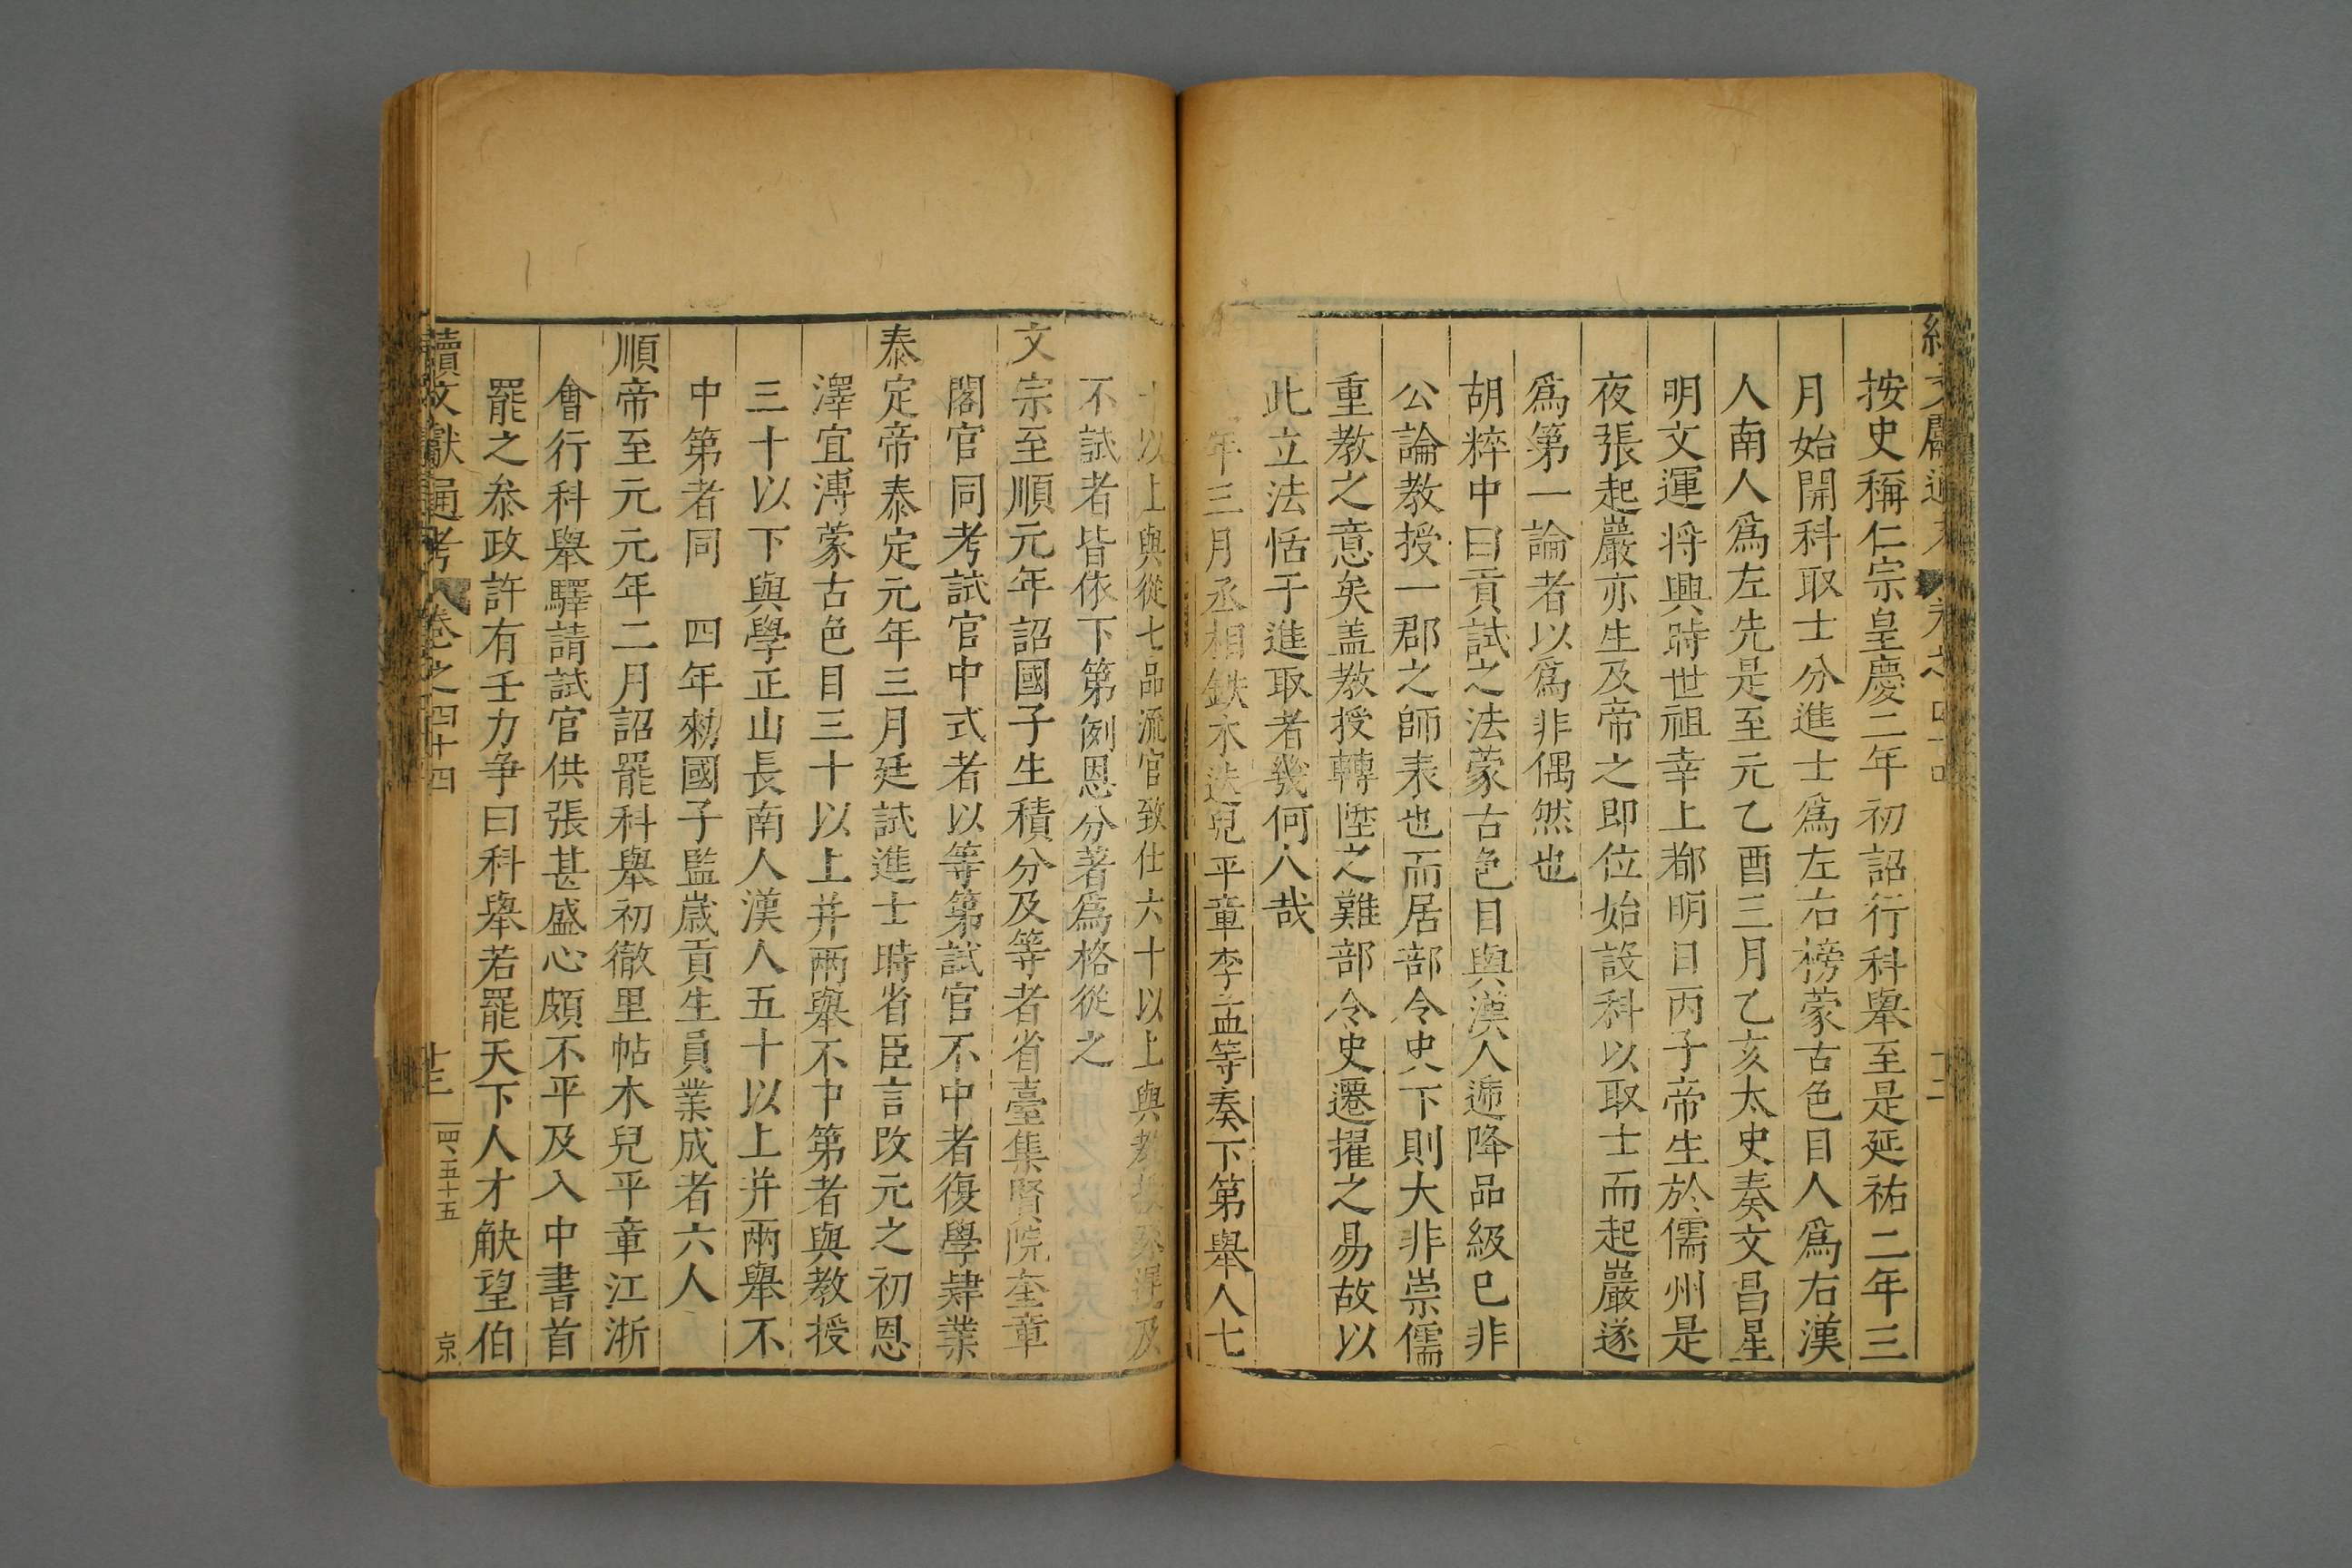 按史稱仁宗皇慶二年初詔行科舉至是延祐二年三
月始開科取士分進士爲左右榜蒙古色目人爲右漢
人南人爲左先是至元乙酉三月乙亥太史奏文昌星
明文運將興時世祖幸上都明日丙子帝生於儒州是
夜張起巖亦生及帝之即位始設科以取士而起巖遂
爲第一論者以爲非偶然也
胡粹中曰貢試之法蒙古色目與漢人遞降品級已非
公論教授一郡之師表也而居部令史下則大非崇儒
重教之意矣盖教授轉陞之難部令史遷擢之易故以
此立法恬于進取者幾何人哉
年三月丞相鉄木迭兒平章李孟等奏下第舉人七
十以上與從七品流官致仕六十以上與教授及
不試者皆依下第例恩分著爲格從之
文宗至順元年詔國子生積分及等者省臺集賢院奎章
閣官同考試官中式者以等第試官不中者復學肄業
泰定帝泰定元年三月廷試進士時省臣言改元之初恩
澤宜溥蒙古色目三十以上并兩舉不中第者與教授
三十以下與學正山長南人漢人五十以上并兩舉不
中第者同 四年勑國子監歲貢生員業成者六人
順帝至元元年二月詔罷科舉初徹里帖木兒平章江浙
會行科舉驛請試官供張甚盛心頗不平及入中書首
罷之叅政許有壬力争曰科舉若罷天下人才觖望伯
續文獻通考 卷之四十四 十三 四、五十五 京